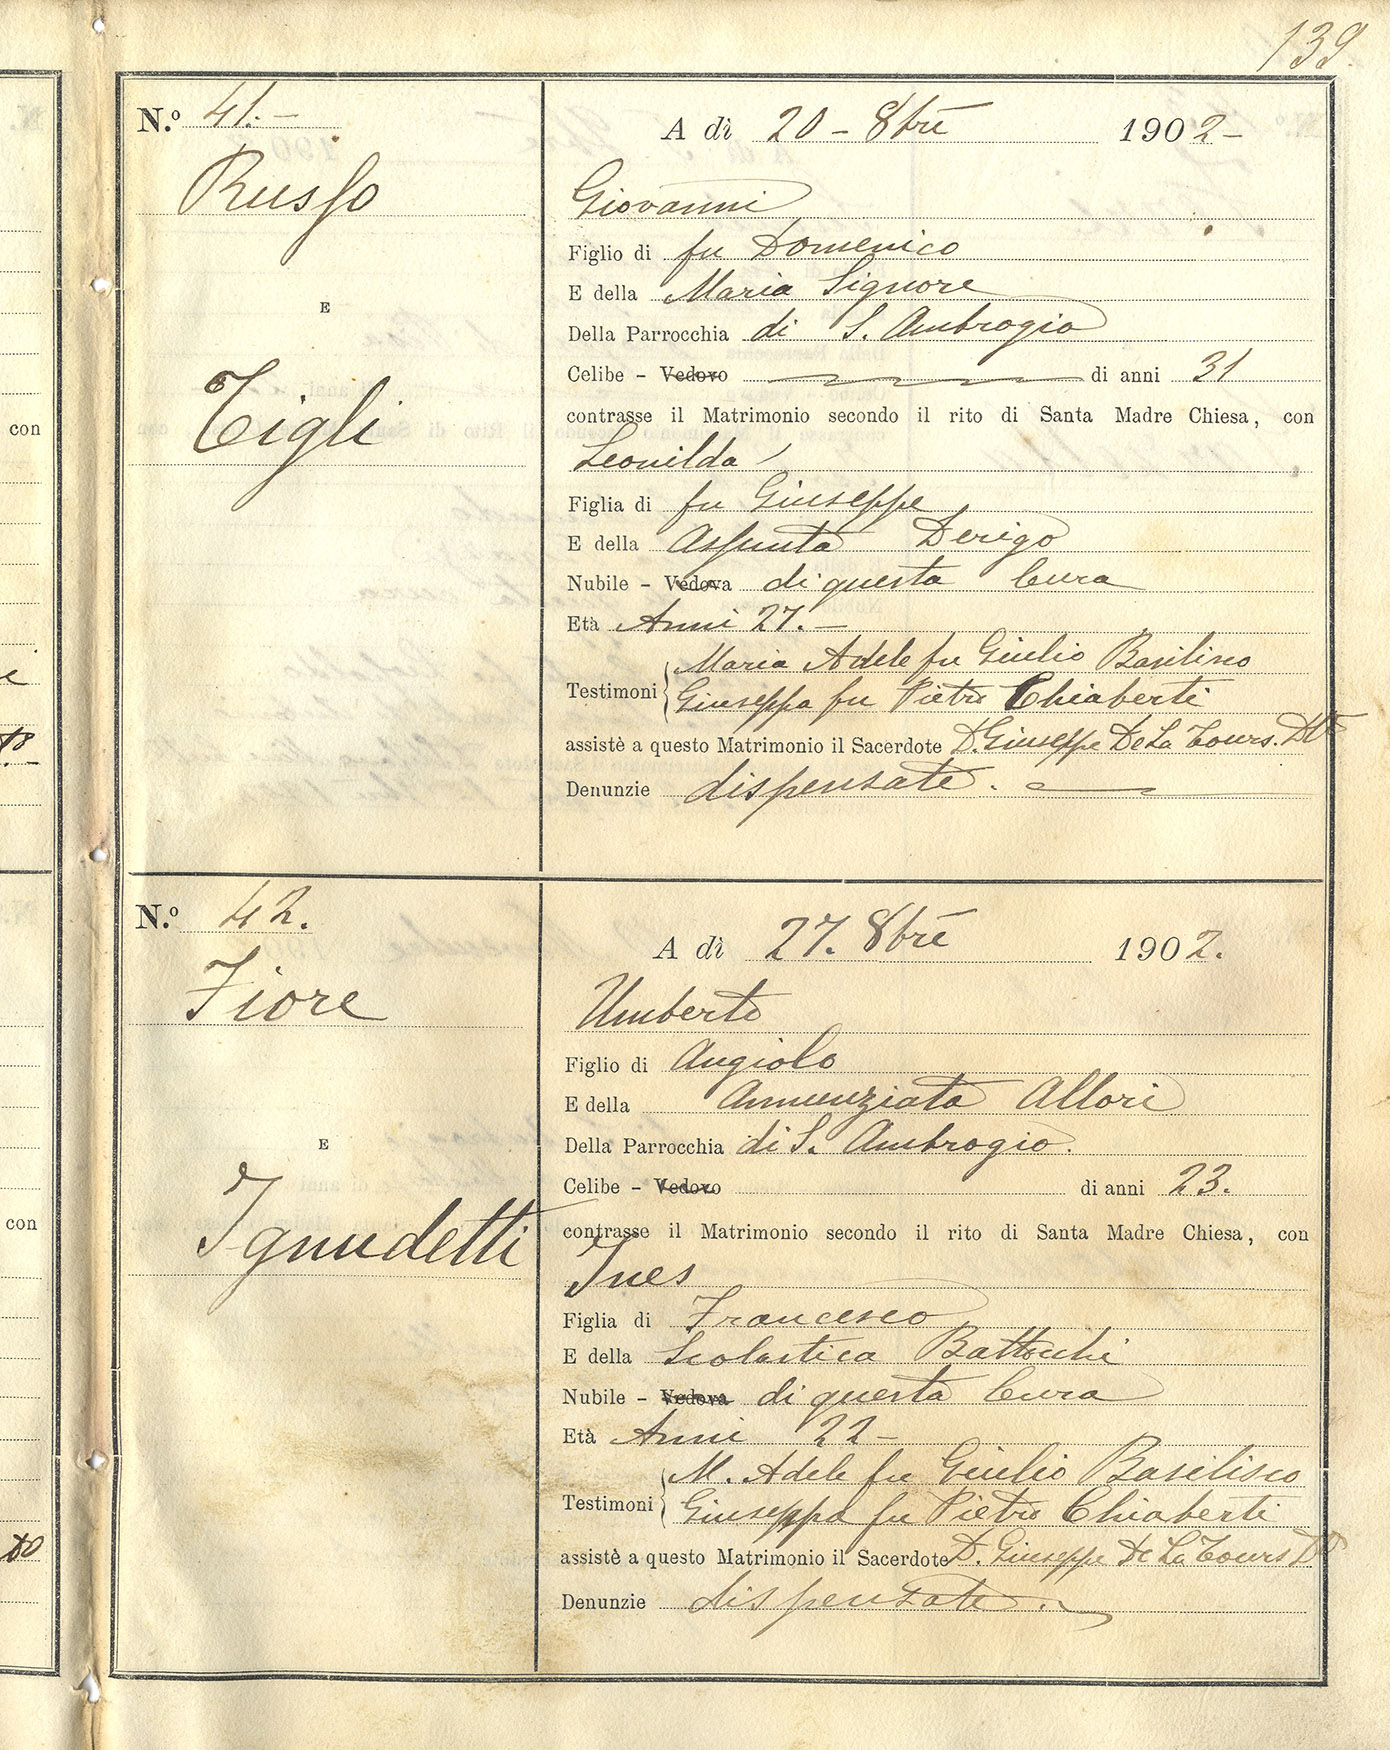 139.
N.º 41.-
Russo
E
Tigli
A dì 20 - 8bre 1902-
Giovanni
Figlio di fu Domenico
E della Maria Signore
Della Parrocchia di S. Ambrogio
Celibe - Vedovo di anni 31
contrasse il Matrimonio secondo il rito di Santa Madre Chiesa, con
Leonilda
Figlia di fu Giuseppe
E della Assunta Derigo
Nubile - Vedova di questa Cura
Età Anni 27.-
Maria Adele fu Giulio Basilisco
Testimoni
Giuseppa fu Pietro Chiaberti
assistè a questo Matrimonio il Sacerdote D. Giuseppe De La Tours.
Denunzie dispensate.
N.º 42.
Fiore
E
Ignudetti
A dì 27. 8bre 1902.
Umberto
Figlio di Angiolo
E della Annunziata Allori
Della Parrocchia di S. Ambrogio.
Celibe - Vedovo di anni 23.
contrasse il Matrimonio secondo il rito di Santa Madre Chiesa, con
Ines
Figlia di Francesco
E della Scolastica Battocchi
Nubile - Vedova di questa Cura
Età Anni 22-
M. Adele fu Giulio Basilisco
Testimoni
Giuseppa fu Pietro Chiaberti
assistè a questo Matrimonio il Sacerdote D. Giuseppe De La Tours
Denunzie dispensate.
con
con